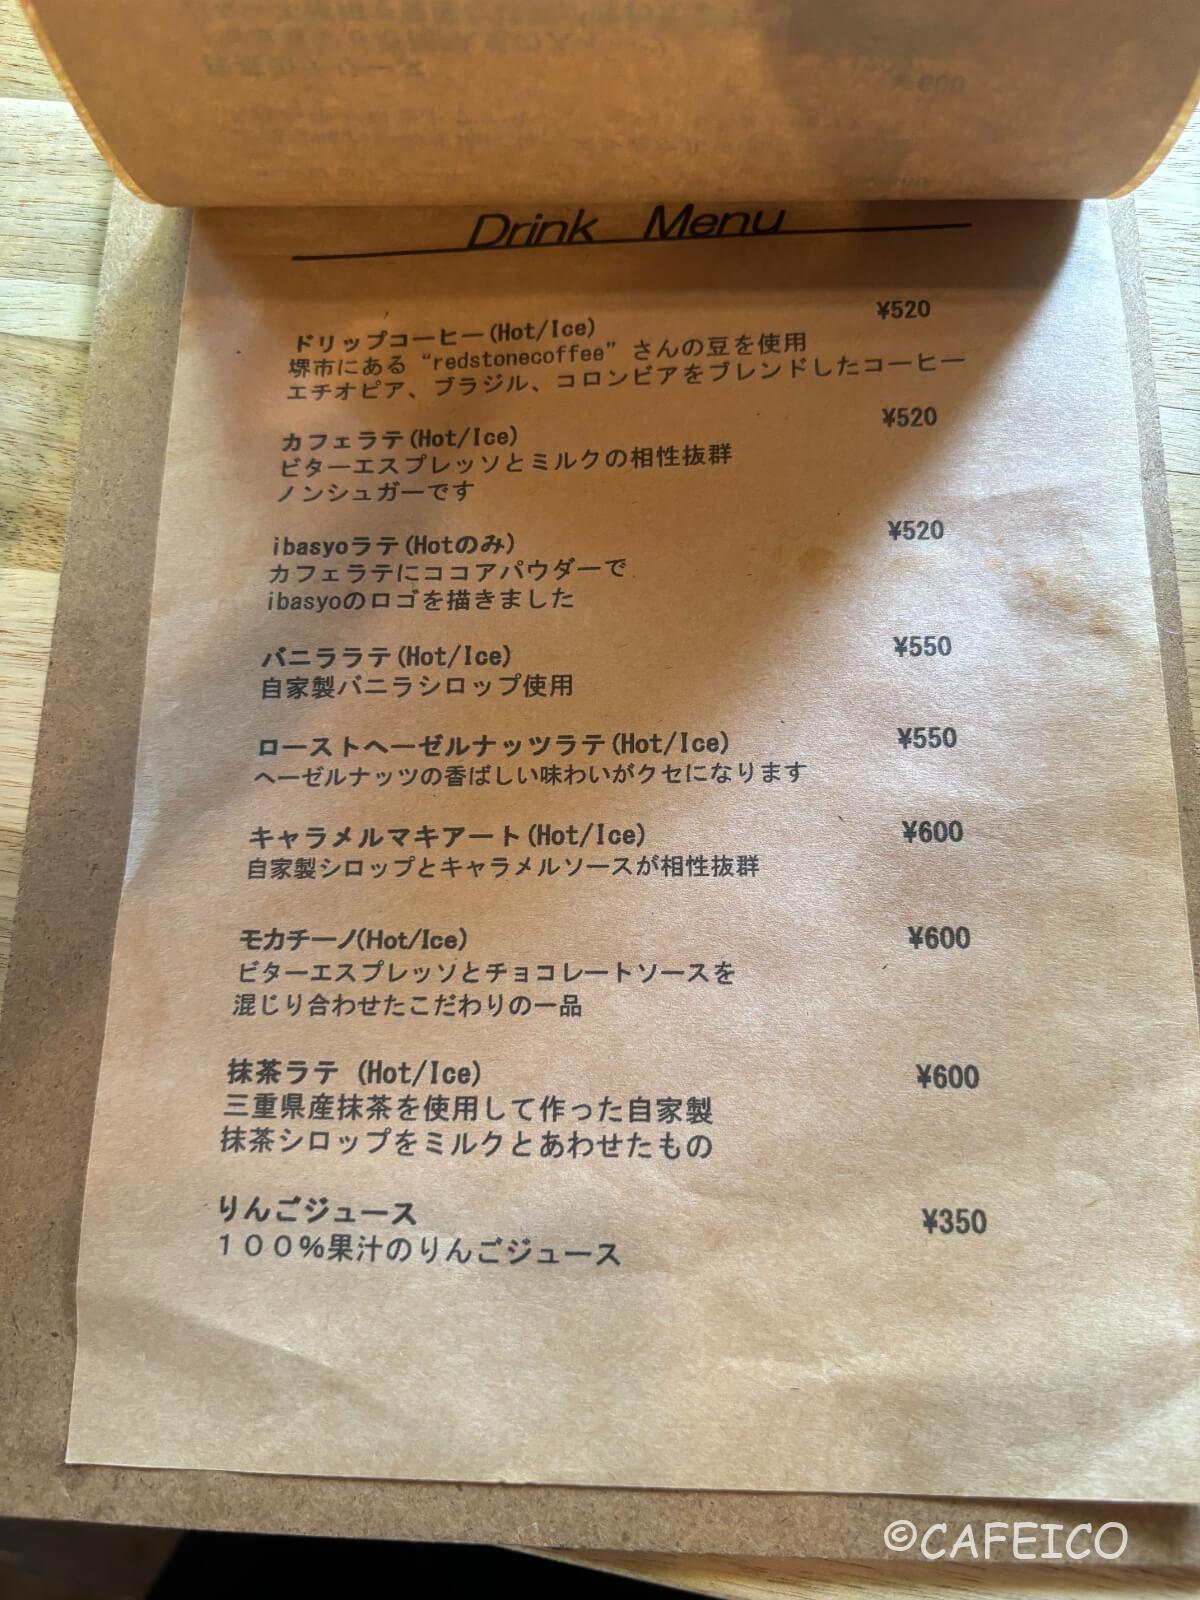 Drink Menu
ドリップコーヒー(Hot/Ice) ¥520
堺市にある“redstonecoffee”さんの豆を使用
エチオピア、ブラジル、コロンビアをブレンドしたコーヒー
カフェラテ(Hot/Ice) ¥520
ビターエスプレッソとミルクの相性抜群
ノンシュガーです
ibasyoラテ(Hotのみ) ¥520
カフェラテにココアパウダーで
ibasyoのロゴを描きました
バニララテ(Hot/Ice) ¥550
自家製バニラシロップ使用
ローストヘーゼルナッツラテ(Hot/Ice) ¥550
ヘーゼルナッツの香ばしい味わいがクセになります
キャラメルマキアート(Hot/Ice) ¥600
自家製シロップとキャラメルソースが相性抜群
モカチーノ(Hot/Ice) ¥600
ビターエスプレッソとチョコレートソースを
混じり合わせたこだわりの一品
抹茶ラテ (Hot/Ice) ¥600
三重県産抹茶を使用して作った自家製
抹茶シロップをミルクとあわせたもの
りんごジュース ¥350
１００％果汁のりんごジュース
©CAFEICO